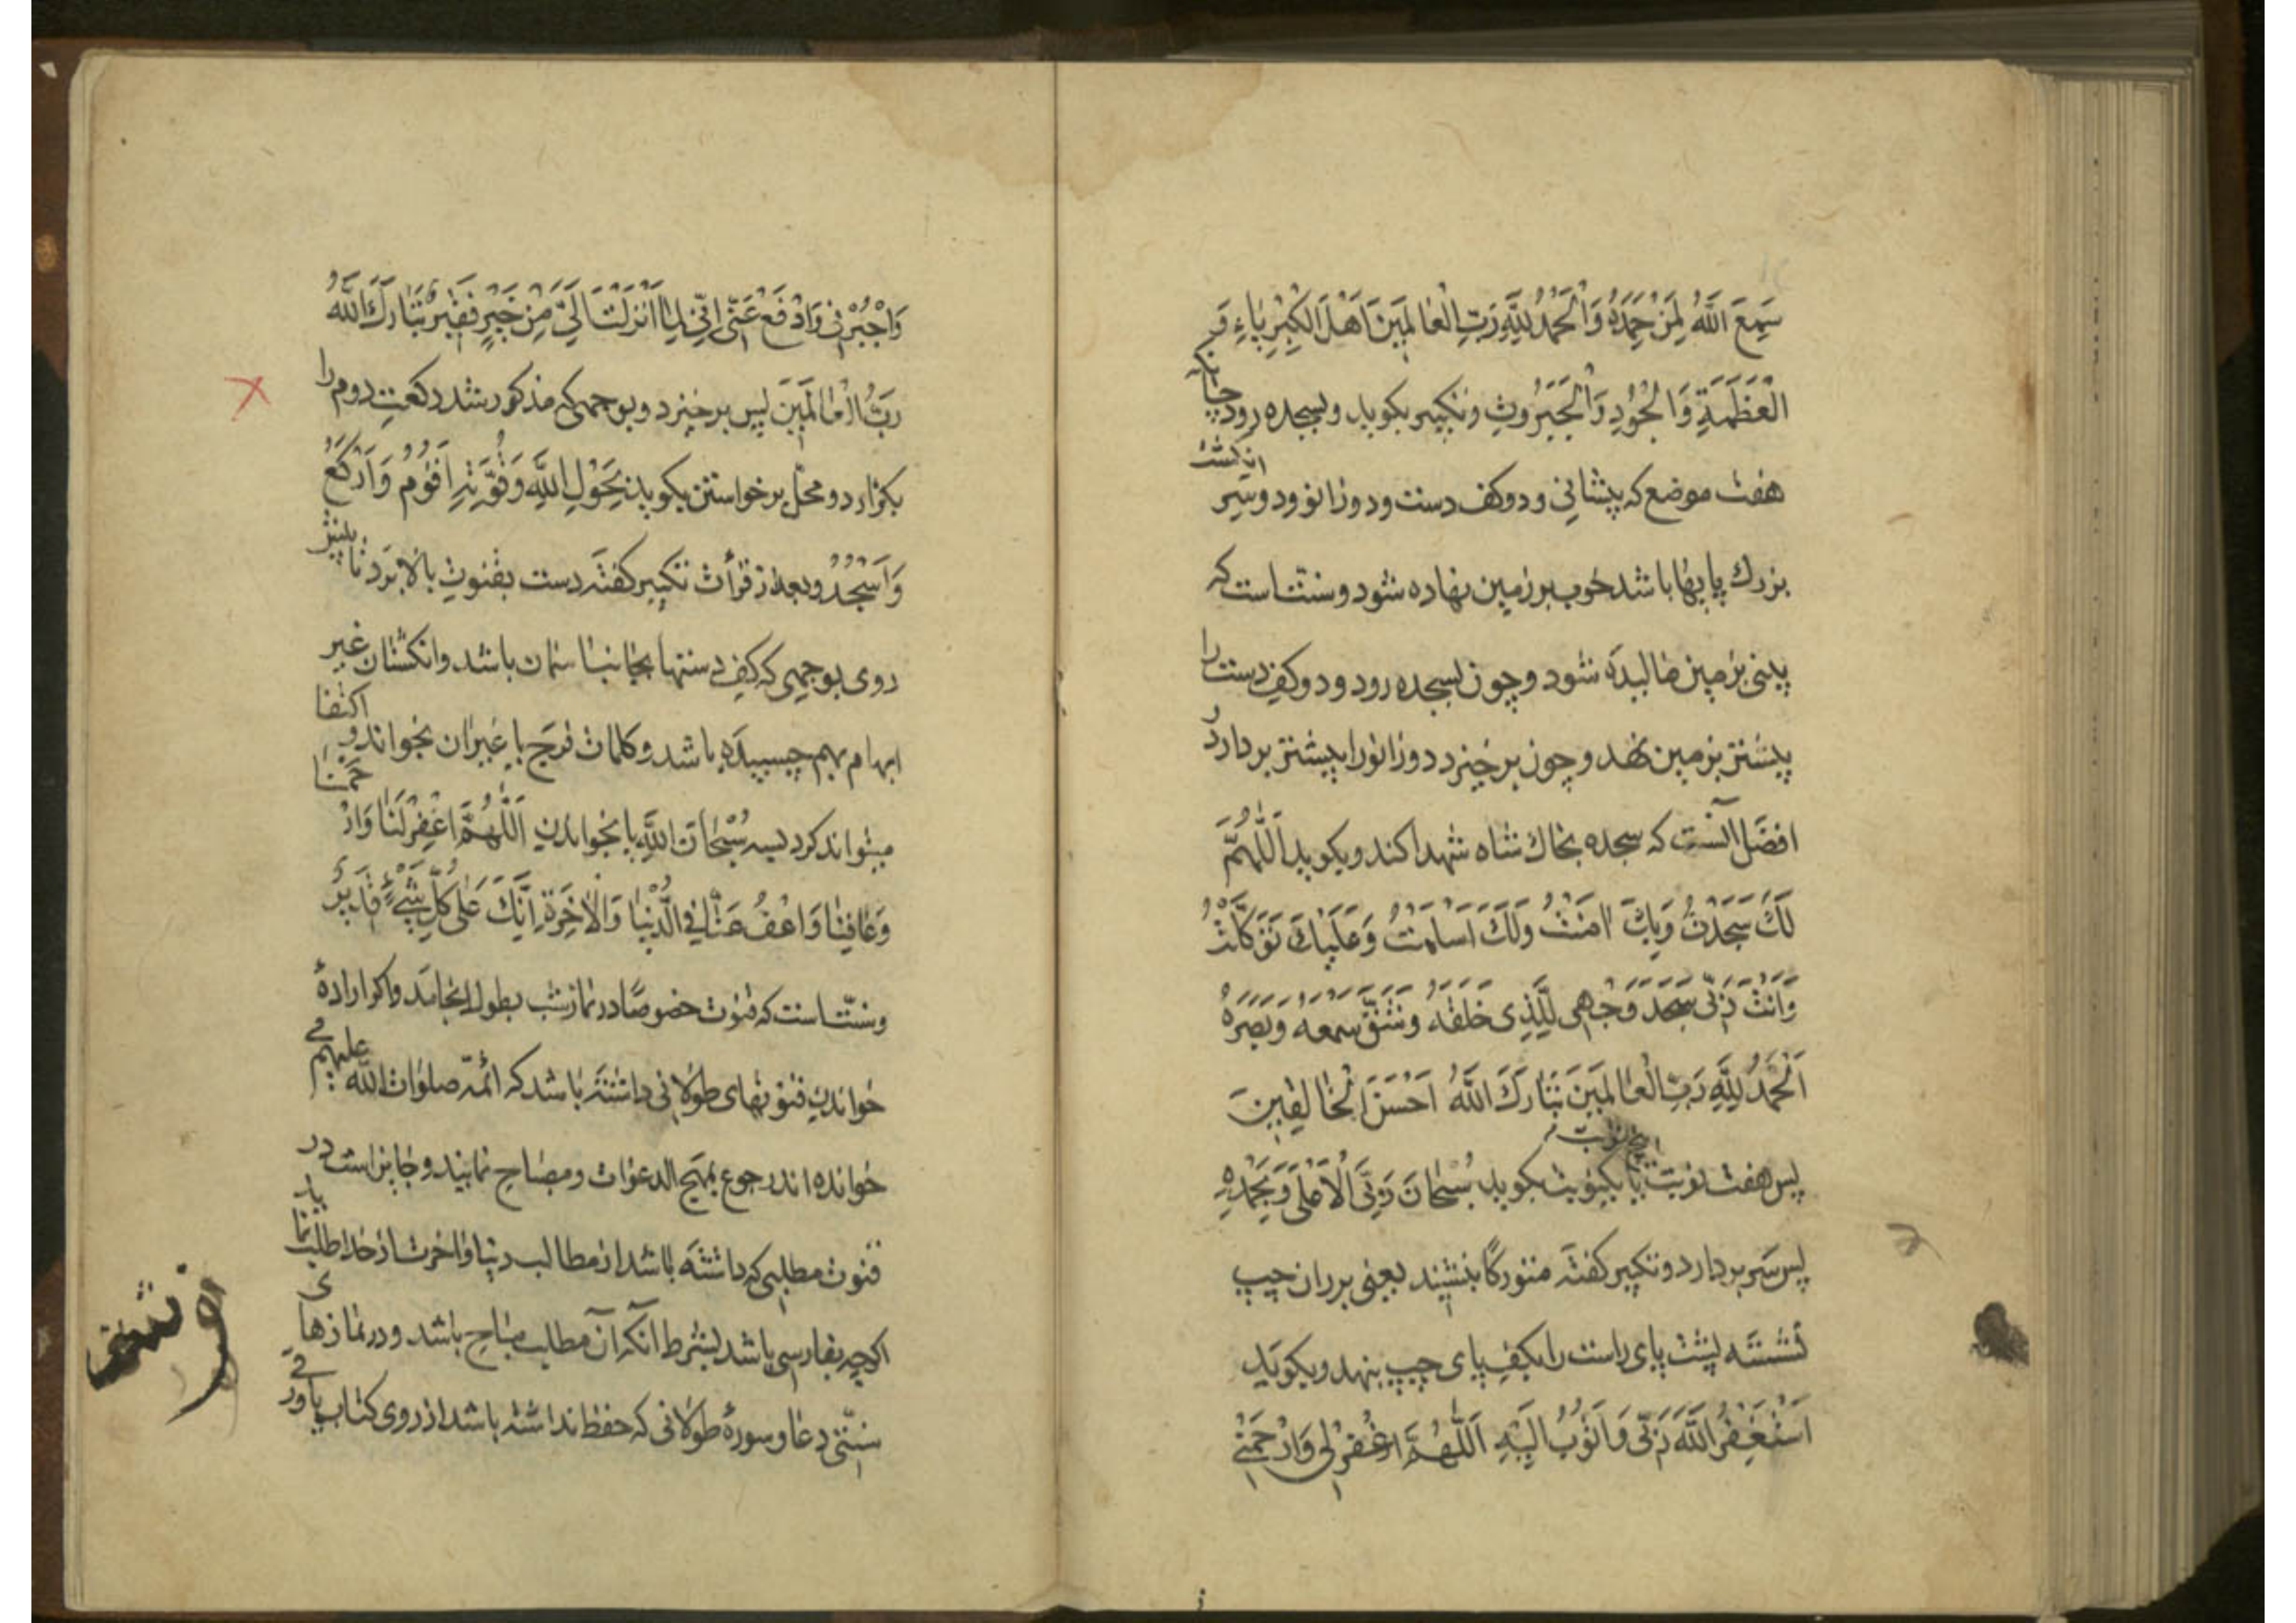 سَمِعَ اللهُ لِمَنْ حَمِدَهُ وَالْحَمْدُ لِلّٰهِ رَبِّ الْعٰالَمِينَ اَهْلَ الْكِبْرِيٰاءِ وَ
الْعَظَمَةِ وَالْجُودِ وَالْجَبَرُوتِ وتكبير بكويد وبسجده رود چنانكه
هفت موضع كه پيشانى و دو كف دست و دو زانو و دو سر انكشت
بزرك پايها باشد خوب بر زمين نهاده شود و سنت است كه
بينى بر زمين ماليده شود و چون بسجده رود دو كف دست را
پيشتر بر زمين نهد و چون برخيزد دو زانو را پيشتر بردارد و
افضل آنست كه سجده بخاك شاه شهدا كند و بكويد اَللّٰهُمَّ
لَكَ سَجَدْتُ وَبِكَ اٰمَنْتُ وَلَكَ اَسْلَمْتُ وَعَلَيْكَ تَوَكَّلْتُ
وَاَنْتَ رَبّى سَجَدَ وَجْهِى لِلَّذِى خَلَقَهُ وَشَقَّ سَمْعَهُ وَبَصَرَهُ
اَلْحَمْدُ لِلّٰهِ رَبِّ الْعٰالَمِينَ تَبٰارَكَ اللهُ اَحْسَنُ الْخٰالِقِينَ
پس هفت نوبت يا پنج نوبت يا يكنوبت بكويد سُبْحٰانَ رَبِّىَ الْاَعْلىٰ وَبِحَمْدِهِ
پس سر بردارد و تكبير كفته متوركًا بنشيند يعنى بر ران چپ
نشسته پشت پاى راست را بكف پاى چپ بنهد و بكويد
اَسْتَغْفِرُ اللهَ رَبّى وَاَتُوبُ اِلَيْهِ اَللّٰهُمَّ اغْفِرْ لِى وَارْحَمْنِى
وَاجْبُرْنِى وَادْفَعْ عَنّى اِنّى لِمٰا اَنْزَلْتَ اِلَىَّ مِنْ خَيْرٍ فَقِيرٌ تَبٰارَكَ اللهُ
رَبُّ الْعٰالَمِينَ پس برخيزد و بوجهى كه مذكور شد ركعت دوم را
بكزارد و محل برخواستن بكويد بِحَوْلِ اللهِ وَقُوَّتِهِ اَقُومُ وَاَرْكَعُ
وَاَسْجُدُ و بعد از قرأت تكبير كفته دست بقنوت بالا برد تا
روى بوجهى كه كف دستها بجانب آسمان باشد و انكشتان غير
ابهام بهم چسپيده باشد و كلمات فرج يا غير آن بخواند و اكتفا
ميتواند كرد بسه سُبْحٰانَ اللهِ يا بخواندن اَللّٰهُمَّ اغْفِرْ لَنٰا وَارْحَمْنٰا
وَعٰافِنٰا وَاعْفُ عَنّٰا فِى الدُّنْيٰا وَالْاٰخِرَةِ اِنَّكَ عَلىٰ كُلِّ شَىْءٍ قَدِيرٌ
و سنّت است كه قنوت خصوصًا در نماز شب بطول انجامد و اكر ارادهٔ
خواندن قنوتهاى طولانى داشته باشد كه ائمّه صلوات الله عليهم
خوانده اند رجوع بمهج الدعوات و مصباح نمايند و جايز است در
قنوت مطلبى كه داشته باشد از مطالب دنيا و آخرت از خدا طلب نمايد
اكرچه بفارسى باشد بشرط آنكه آن مطلب مباح باشد و در نمازهاى
سنّتى دعا و سورهٔ طولانى كه حفظ نداشته باشد از روى كتاب